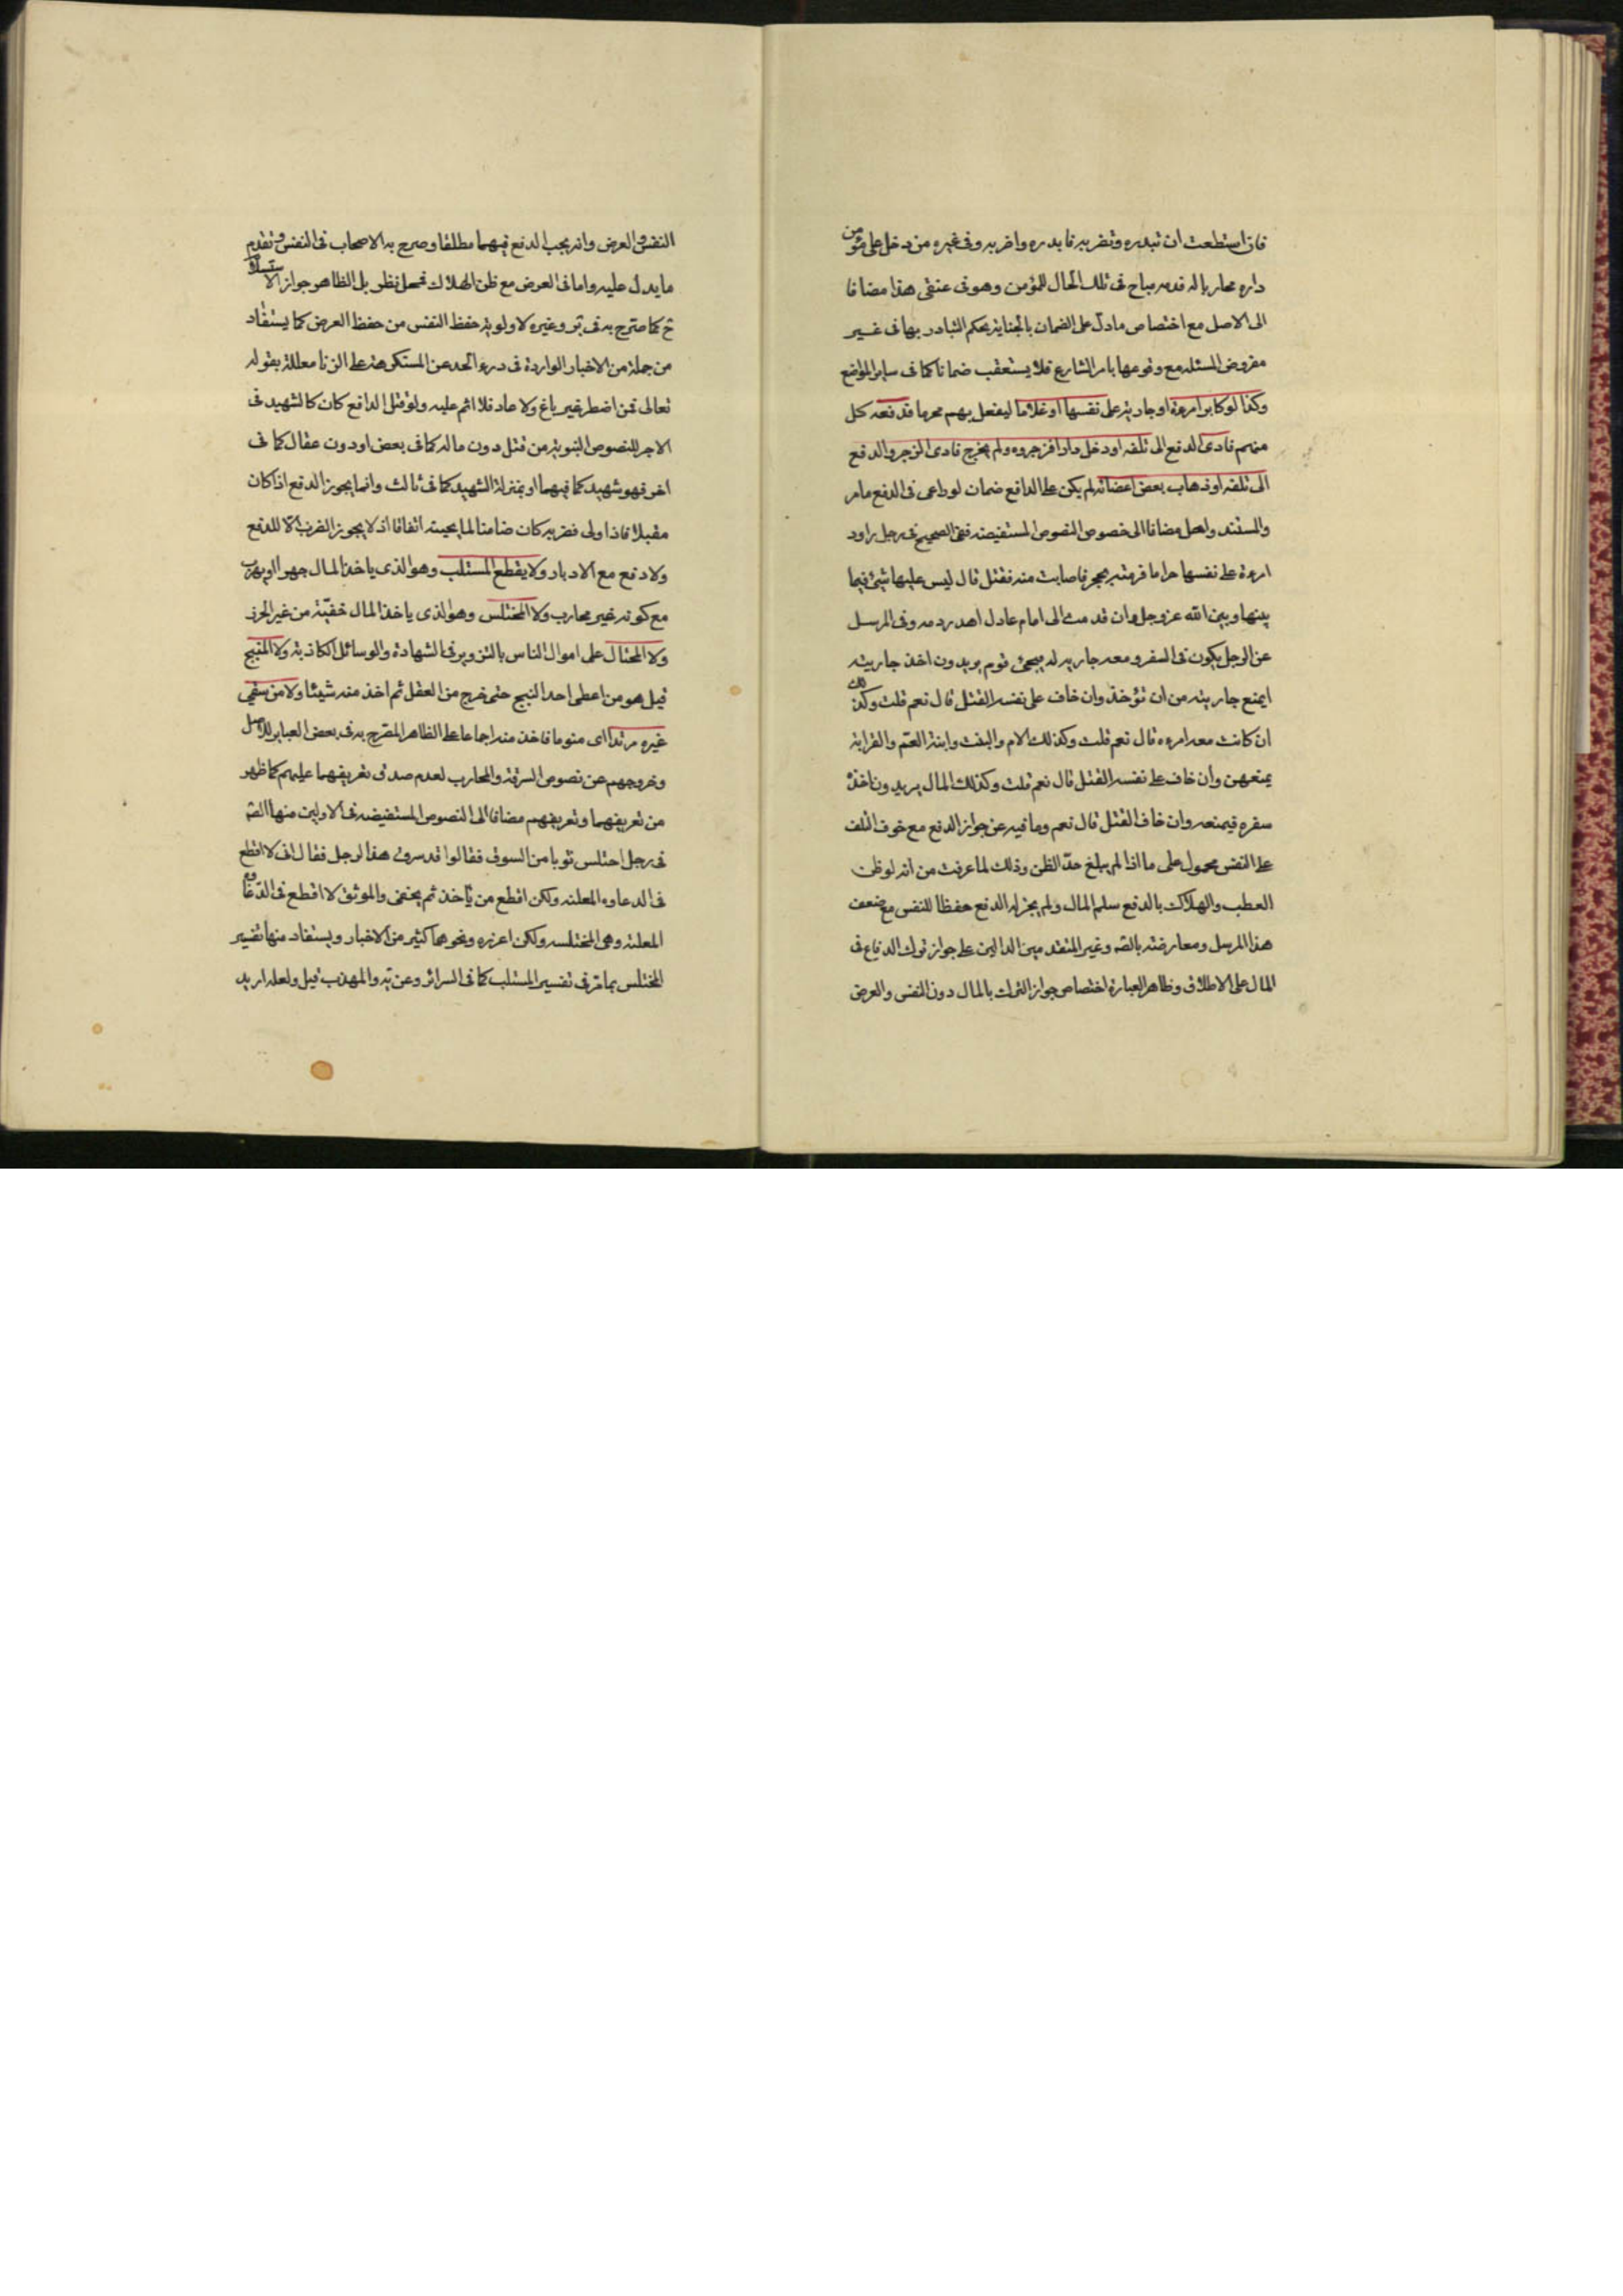 فان استطعت ان تبدره وتضربه فابدره واضربه وفى غيره من دخل على مؤمن
داره محاربا له فدمه مباح فى تلك الحال للمؤمن وهو فى عنقى هذا مضافا
الى الاصل مع اختصاص ما دل على الضمان بالجناية بحكم التبادر بها فى غير
مفروض المسئله مع وقوعها بامر الشارع فلا يستعقب ضمانا كما فى ساير المواضع
وكذا لو كابر امرءة او جارية على نفسها او غلاما ليفعل بهم محرما فدفعه كل
منهم فادى الدفع الى تلفه او دخل دارا فزجروه ولم يخرج فادى الزجر والدفع
الى تلفه او ذهاب بعض اعضائه لم يكن على الدافع ضمان لو راعى فى الدفع ما مر
والمستند واحد مضافا الى خصوص النصوص المستفيضه ففى الصحيح فى رجل راود
امرءة على نفسها حراما فرمته بحجر فاصابت منه فقتل قال ليس عليها شئ فيما
بينها وبين الله عزوجل وان قدمت الى امام عادل اهدر دمه وفى المرسل
عن الرجل يكون فى السفر ومعه جاريه له فيجئ قوم يريدون اخذ جاريته
ايمنع جاريته من ان تؤخذ وان خاف على نفسه القتل قال نعم قلت وكذلك
ان كانت معه امرءه قال نعم قلت وكذلك الام والبنت وابنة العم والقرابة
يمنعهن وان خاف على نفسه القتل قال نعم قلت وكذلك المال يريدون اخذه فى
سفره فيمنعه وان خاف القتل قال نعم وما فيه عن جواز الدفع مع خوف التلف
على النفس محمول على ما اذا لم يبلغ حد الظن وذلك لما عرفت من انه لو ظن
العطب والهلاك بالدفع سلم المال ولم يجز له الدفع حفظا للنفس مع ضعف
هذا المرسل ومعارضته بالصه وغير المتقدمين الدالين على جواز ترك الدفاع فى
المال على الاطلاق وظاهر العبارة اختصاص جواز الترك بالمال دون النفس والعرض
النفس والعرض وانه يجب الدفع فيهما مطلقا وصرح به الاصحاب فى النفس وتقدم
ما يدل عليه واما فى العرض مع ظن الهلاك فمحل نظر بل الظاهر جواز الاستسلام
ح كما صرح به فى ير وغيره لاولوية حفظ النفس من حفظ العرض كما يستفاد
من جملة من الاخبار الواردة فى درء الحد عن المستكرهه على الزنا معللة بقوله
تعالى فمن اضطر غير باغ ولا عاد فلا اثم عليه ولو قتل الدافع كان كالشهيد فى
الاجر للنصوص النبوية من قتل دون ماله كما فى بعض او دون عقال كما فى
اخر فهو شهيد كما فيهما او بمنزلة الشهيد كما فى ثالث وانما يجوز الدفع اذا كان
مقبلا فاذا ولى فضربه كان ضامنا لما يجيئه اتفاقا اذ لا يجوز الضرب الا للدفع
ولا دفع مع الادبار ولا يقطع المستلب وهو الذى ياخذ المال جهرا او يهرب
مع كونه غير محارب ولا المختلس وهو الذى ياخذ المال خفية من غير الحرز
ولا المحتال على اموال الناس بالتزوير فى الشهادة والوسائل الكاذبة ولا المبنج
قيل هو من اعطى احدا البنج حتى خرج من العقل ثم اخذ منه شيئا ولا من سقى
غيره مرقدا اى منوما فاخذ منه اجماعا على الظاهر المصرح به فى بعض العباير للاصل
وخروجهم عن نصوص السرقة والمحارب لعدم صدق تعريفهما عليهم كما ظهر
من تعريفهما وتعريفهم مضافا الى النصوص المستفيضه فى الاولين منها الصه
فى رجل اختلس ثوبا من السوق فقالوا قد سرق هذا الرجل فقال انى لا اقطع
فى الدعاوه المعلنه ولكن اقطع من ياخذ ثم يخفى والموثق لا اقطع فى الدغارة
المعلنة وهى الخلسه ولكن اعزره ونحوهما كثير من الاخبار ويستفاد منها تفسير
المختلس بما مر فى تفسير المستلب كما فى السرائر وعن يه والمهذب قيل ولعله اريد